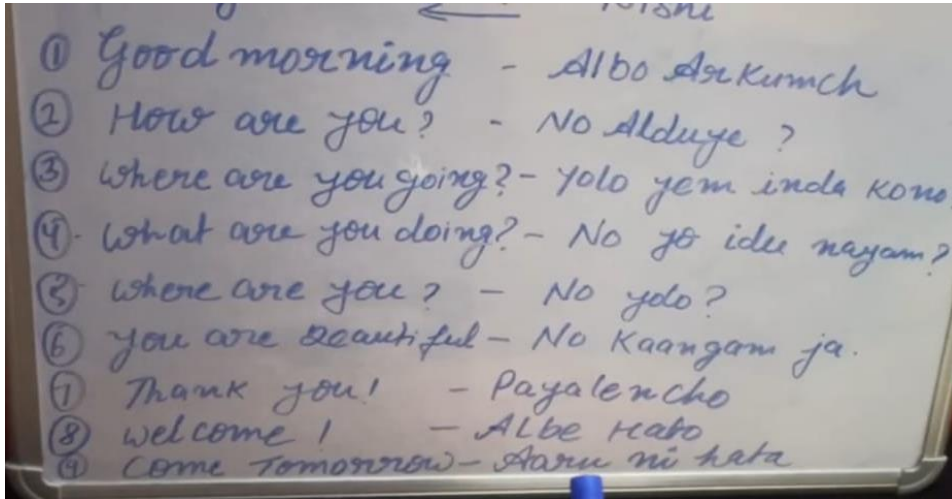 ① Good morning - Albo Arkumch
② How are you? - No Alduye ?
③ where are you going? - Yolo yem inda kono
④. What are you doing? - No yo idu nayam?
⑤ where are you? - No yolo?
⑥ you are Beautiful - No Kaangam ja.
⑦ Thank you! - Payalencho
⑧ welcome ! - Albe Habo
⑨ come Tomorrow - Aaru ni hata